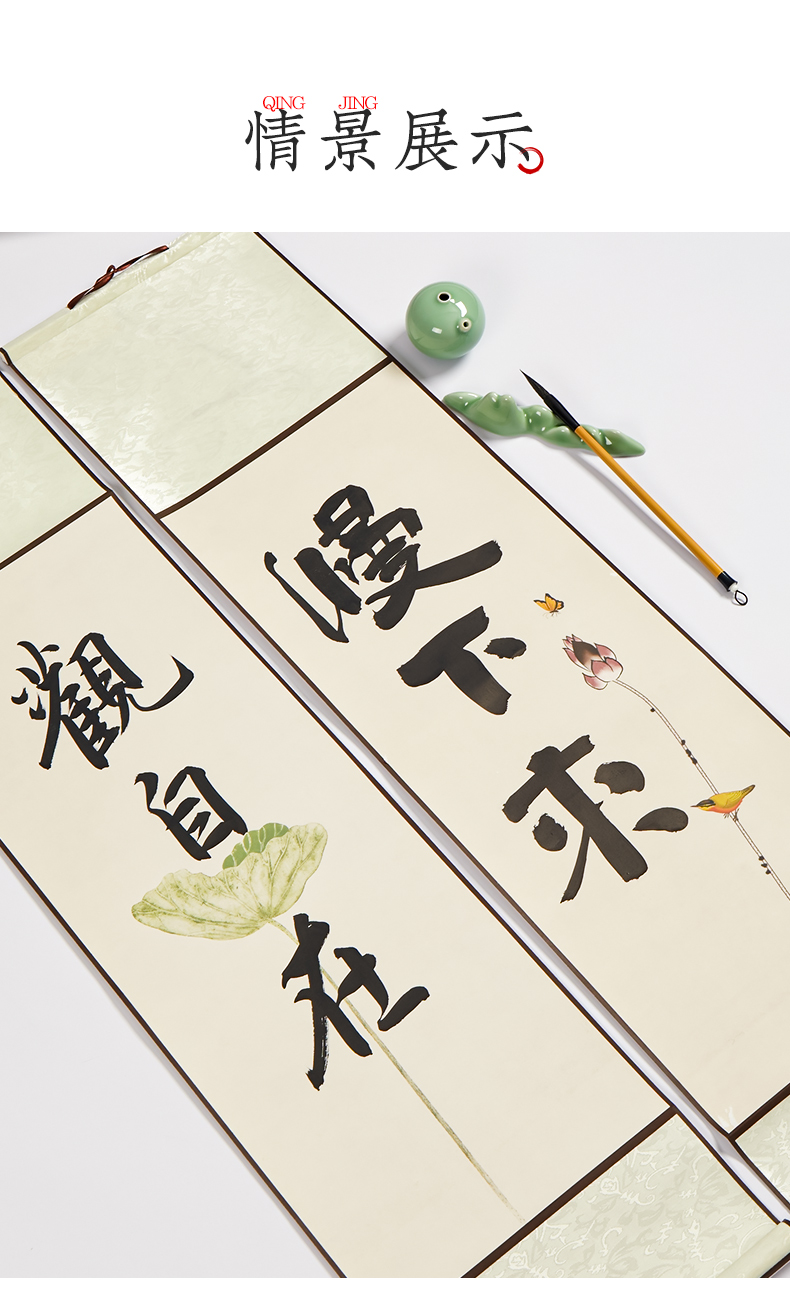 QING JING
情景展示
慢下来
觀自在